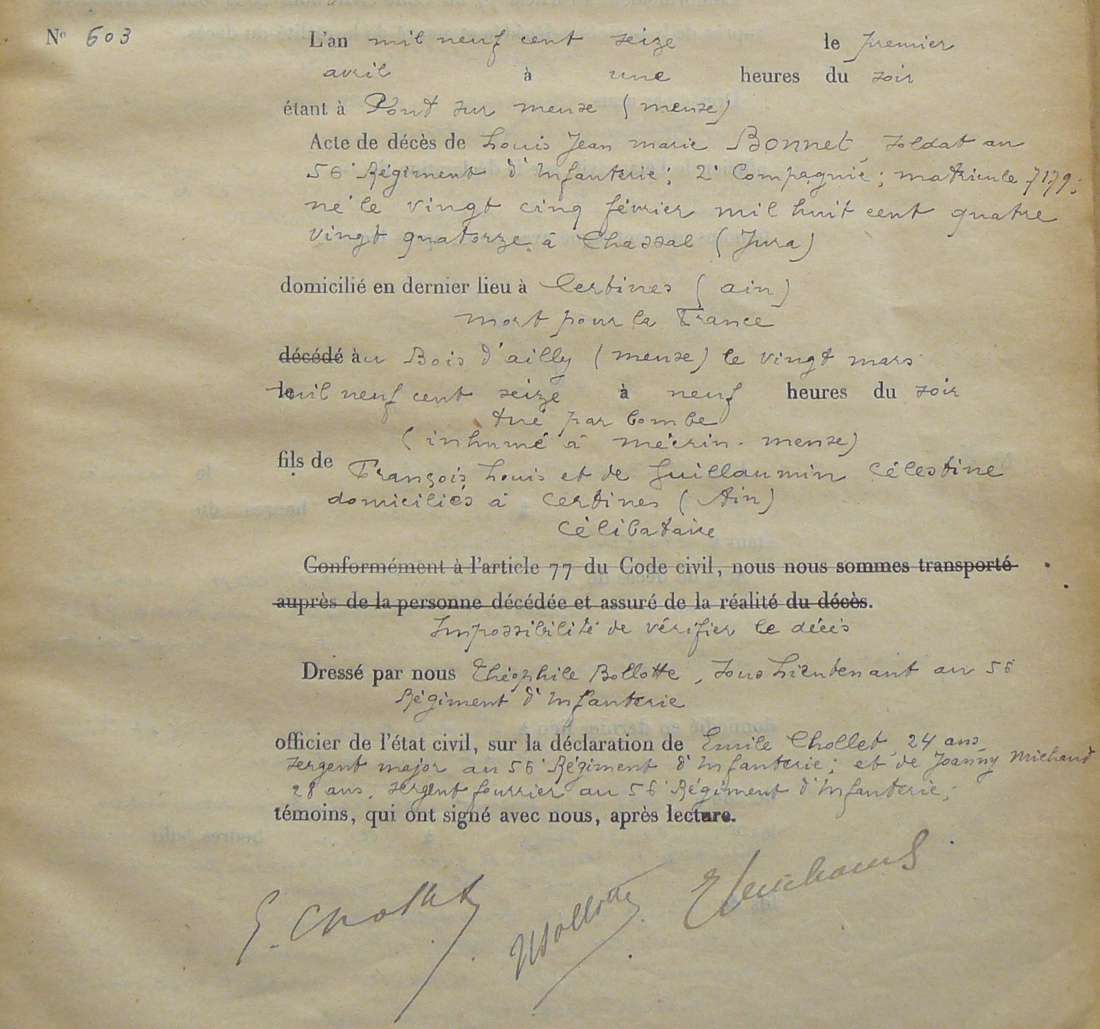 N° 603
L'an mil neuf cent seize le premier
avril à une heures du soir
étant à Pont sur meuse (meuse)
Acte de décès de Louis Jean marie Bonnet, soldat au
56e Régiment d'Infanterie; 2e Compagnie; matricule 7179;
né le vingt cinq février mil huit cent quatre
vingt quatorze à Chassal (Jura)
domicilié en dernier lieu à Certines (ain)
mort pour la France
décédé au Bois d'ailly (meuse) le vingt mars
le mil neuf cent seize à neuf heures du soir
tué par bombe
(inhumé à mécrin - meuse)
fils de François Louis et de Guillaumin Célestine
domiciliés à Certines (Ain)
célibataire
Conformément à l'article 77 du Code civil, nous nous sommes transporté
auprès de la personne décédée et assuré de la réalité du décès.
Impossibilité de vérifier le décès
Dressé par nous Théophile Bollotte, sous Lieutenant au 56
Régiment d'Infanterie
officier de l'état civil, sur la déclaration de Emile Chollet, 24 ans,
sergent major au 56e Régiment d'Infanterie; et de Joanny Michaud
28 ans, sergent fourrier au 56e Régiment d'Infanterie;
témoins, qui ont signé avec nous, après lecture.
E. Chollet Bollotte